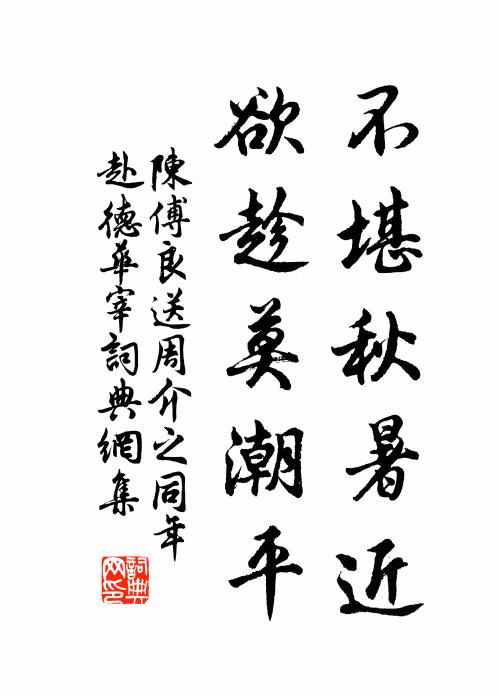 不堪秋暑近
欲趁莫潮平
陳傅良送周介之同年
赴德華宰詞典網集
詞典网印